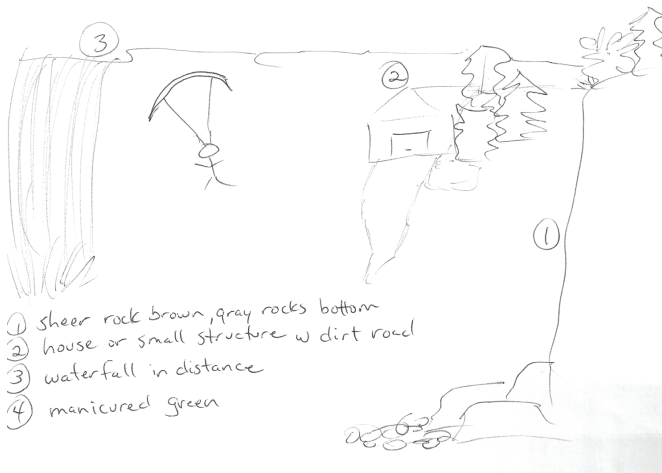 ③
②
①
① sheer rock brown, gray rocks bottom
② house or small structure w dirt road
③ waterfall in distance
④ manicured green